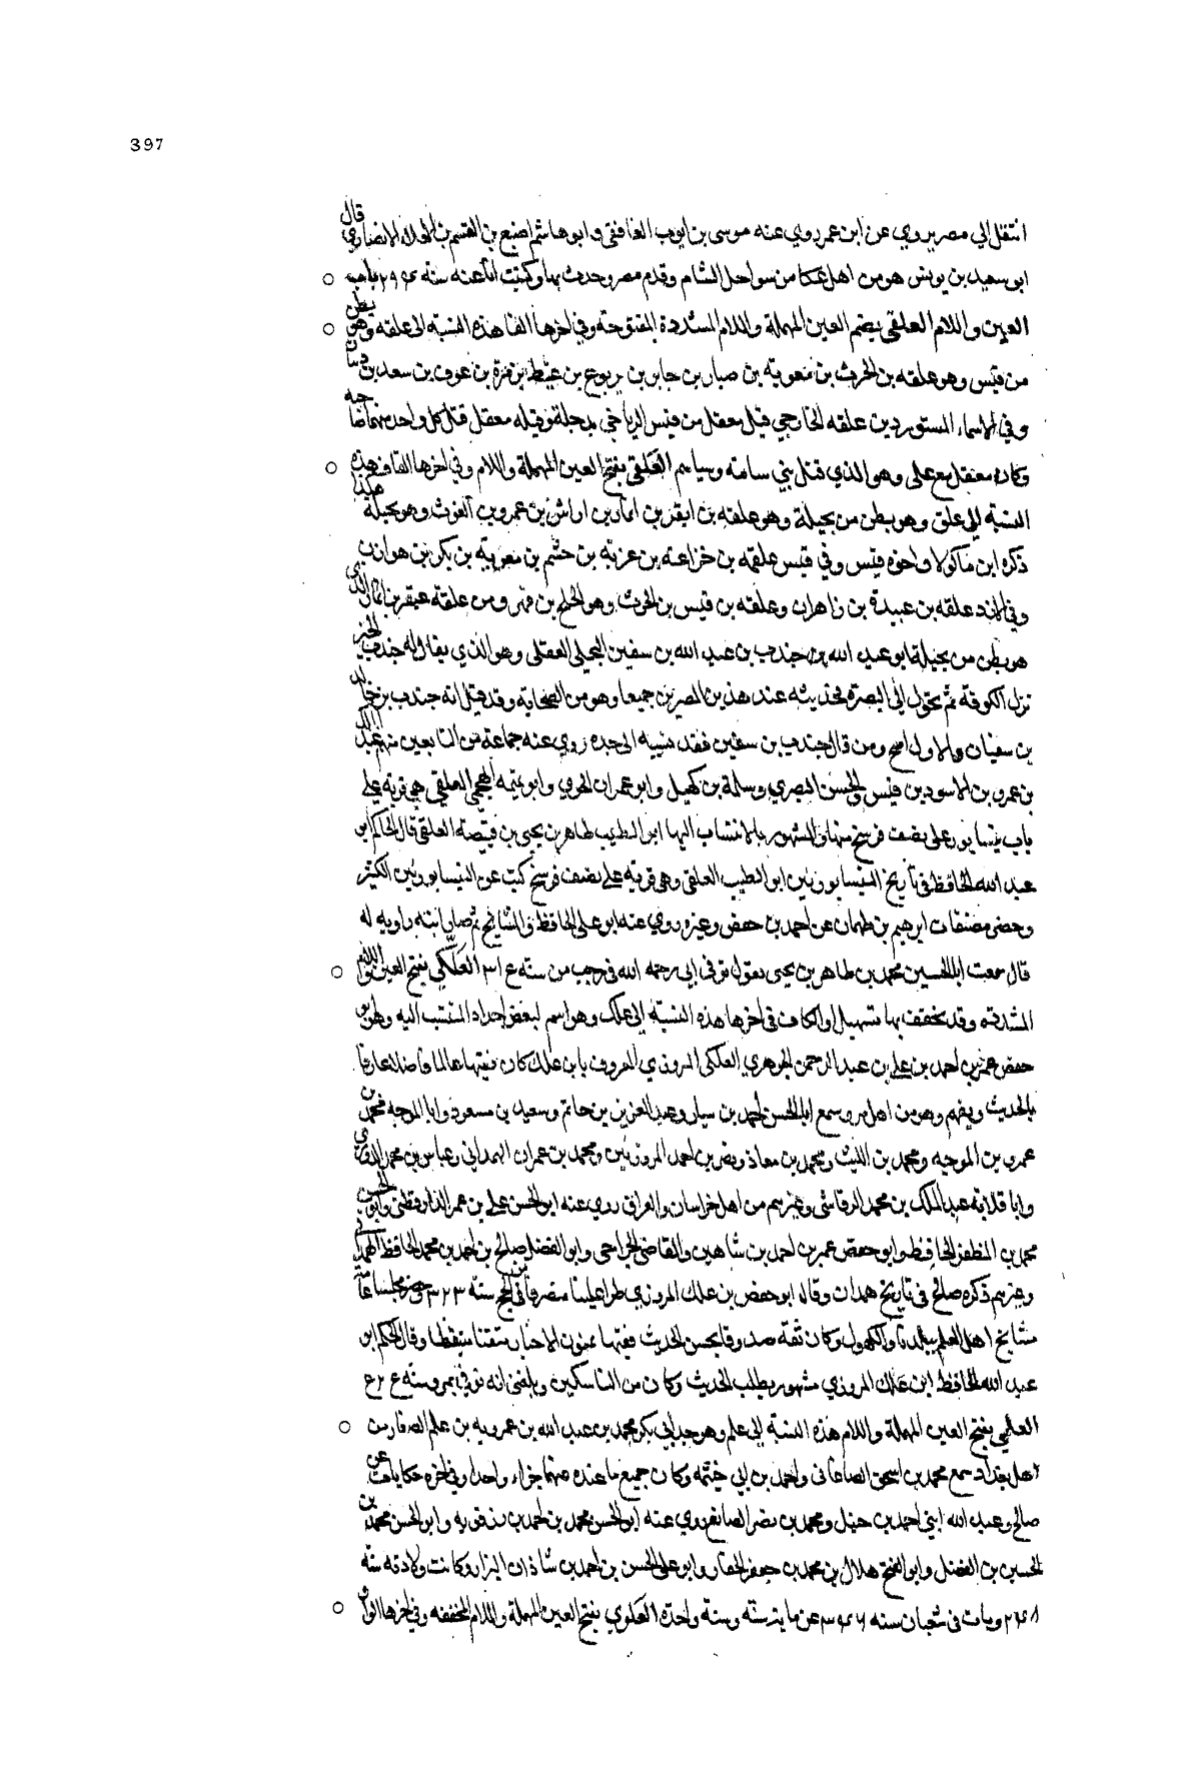 397
انتقل الي مصر يروي عن ابن عمر روي عنه موسى بن ايوب الغافقي وابو هاشم اصبغ بن القسم بن الانصاري قال
ابو سعيد بن يونس هو من اهل عكا من سواحل الشام وقدم مصر وحدث بها وكتبت انا عنه سنه ٢٩٠ باب
العين واللام العلقي بضم العين المهملة واللام المشددة المفتوحة وفي اخرها القاف هذه النسبة الى علقه وهو بطن
من قيس وهو علقه بن الحرث بن معوية بن صبار بن جابر بن يربوع بن غيظ بن مرة بن عوف بن سعد بن ذبيان
وفي الاسماء المستورد بن علقه الخارجي قيل معقل بن قيس الرياحي بدجلة وقيله معقل قتل كل واحد منهما صاحبه
وكان معقل مع على وهو الذي قتل بني سامة وسباهم العلقي بفتح العين المهملة واللام وفي اخرها القاف هذه
النسبة الي علق وهو بطن من بجيلة وهو علقه بن عبقر بن انمار بن اراش بن عمرو بن الغوث وهو بجيلة هكذا
ذكره ابن ماكولا واخوه قيس وفي قيس علقه بن خزاعة بن غزية بن جشم بن معوية بن بكر بن هوازن
وفي الازد علقه بن عبيدة بن زاهران وعلقه بن قيس بن الحرث وهو بن فهر ومن علقه عبقر بن انمار الذي
هو بطن من بجيلة ابو عبد الله جندب بن عبد الله بن سفين البجلي العلقي وهو الذي يقال له جندب الخير
نزل الكوفة ثم تحول الى البصرة فحديثه عند هذين المصرين جميعا وهو من الصحابة وقد قيل انه جندب بن خالد
بن سفيان والاول اصح ومن قال جندب بن سفين فقد نسبه الى جده روي عنه جماعة من التابعين منهم عبد الملك
بن عمير بن الاسود بن قيس والحسن البصري وسلمة بن كهيل وابو عمران الجوني وابو تميمه الهجيمي العلقي هي قرية على
باب نيسابور على نصف فرسخ منها والمشهور بالانتساب اليها ابو الطيب طاهر بن يحيى بن قبيصه العلقي قال الحاكم ابو
عبد الله الحافظ في تاريخ النيسابوريين ابو الطيب العلقي وهي قرية على نصف فرسخ كتب عن النيسابوريين الكثير
وحصن مصنفات ابرهيم بن طهمان عن احمد بن حفص وغيره روي عنه ابو على الحافظ والمشايخ ثم صار ابنه راويه له
قال سمعت ابا الحسين محمد بن طاهر بن يحيى يقول توفي ابي رحمه الله في رجب من سنه ٣١٤ العلكي بفتح العين واللام
المشددة وقد يخفف بها تسهيلا والكاف في اخرها هذه النسبة الى علك وهو اسم لبعض اجداد المنتسب اليه وهو ابو
حفص عمر بن احمد بن علي بن عبد الرحمن الجوهري العلكي المروزي المعروف بابن علك كان فقيها عالما فاضلا عارفا
بالحديث ويفهم وهو من اهل مرو سمع ابا الحسن احمد بن سيار وعبد العزيز بن حاتم وسعيد بن مسعود وابا الموجه محمد بن
عمرو بن الموجه ومحمد بن الليث ومحمد بن معاذ ونصر بن احمد المروزيين ومحمد بن عمران الهمداني وعباس بن محمد الدوري
وابا قلابة عبد الملك بن محمد الرقاشي وغيرهم من اهل خراسان والعراق روي عنه ابو الحسن علي بن عمر الدارقطني وابو الحسن
محمد بن المظفر الحافظ وابو حفص عمر بن احمد بن شاهين والقاضي الجراحي وابو الفضل صالح بن احمد بن محمد الحافظ الهمداني
وغيرهم ذكره صالح في تاريخ همدان وقال ابو حفص بن علك المروزي طرا علينا منصرفا من الحج سنة ٣٢٣ وحضر مجلسنا عامة
مشايخ اهل العلم ببلدنا والكهول وكان ثقة صدوقا يحسن الحديث فقيها بمتون الاخبار متقنا متيقظا وقال الحاكم ابو
عبد الله الحافظ ابن علك المروزي مشهور بطلب الحديث وكان من الناسكين وبلغني انه توفي بمرو سنه
العلمي بفتح العين المهملة واللام هذه النسبة الى علم وهو جد ابي بكر محمد بن عبد الله بن عمرويه بن علم الصفار من
اهل بغداد سمع محمد بن اسحق الصاغاني واحمد بن ابي خيثمه وكان جميع ما عنده عنهما جزاء واحدا وفي اخره حكايات عن
صالح وعبد الله ابني احمد بن حنبل ومحمد بن نصر الصايغ روي عنه ابو الحسن محمد بن احمد بن رزقويه وابو الحسن محمد بن
الحسين بن الفضل وابو الفتح هلال بن محمد بن جعفر الحفار وابو علي الحسن بن احمد بن شاذان البزاز وكانت ولادته سنة
٢٤٨ ومات في شعبان سنه ٣٤٩ عن مايه سنة وسنة واحدة العلوي بفتح العين المهملة واللام المخففه وفي اخرها الواو